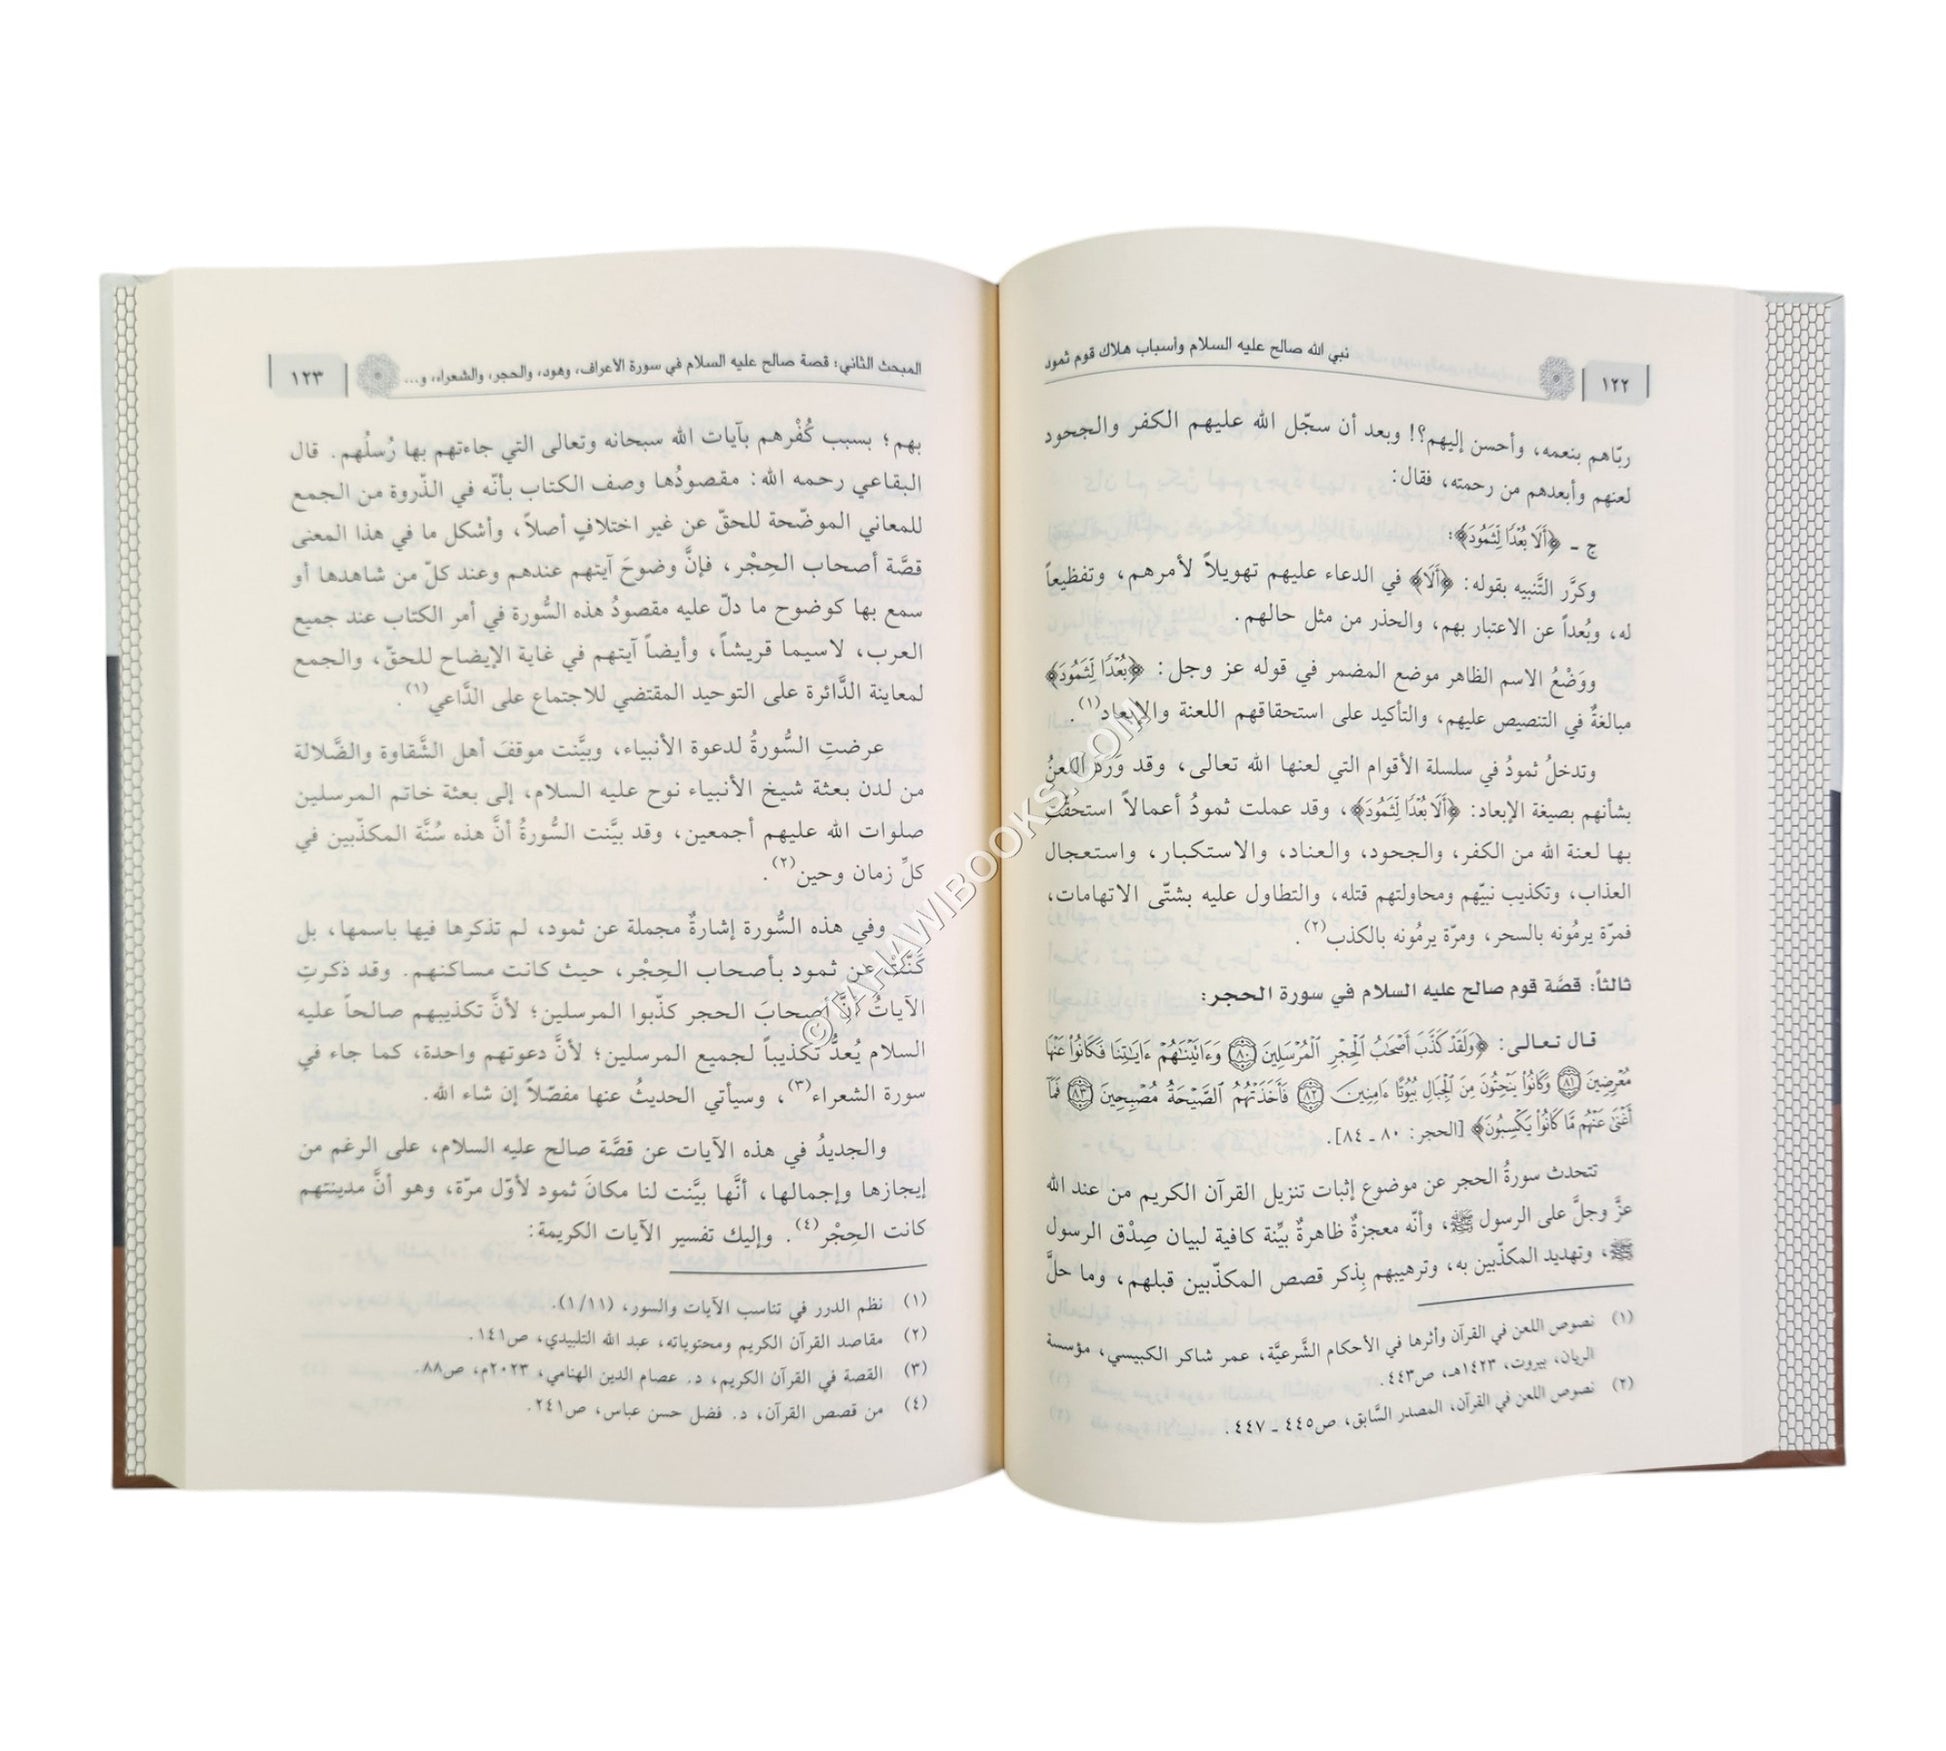 نبي الله صالح عليه السلام وأسباب هلاك قوم ثمود
١٢٢
ربّاهم بنعمه، وأحسن إليهم؟! وبعد أن سجّل الله عليهم الكفر والجحود
لعنهم وأبعدهم من رحمته، فقال:
ج ـ ﴿أَلَا بُعْدًا لِّثَمُودَ﴾:
وكرَّر التَّنبيه بقوله: ﴿أَلَا﴾ في الدعاء عليهم تهويلاً لأمرهم، وتفظيعاً
له، وبُعداً عن الاعتبار بهم، والحذر من مثل حالهم.
ووَضْعُ الاسم الظاهر موضع المضمر في قوله عز وجل: ﴿بُعْدًا لِّثَمُودَ﴾
مبالغةٌ في التنصيص عليهم، والتأكيد على استحقاقهم اللعنة والإبعاد(١).
وتدخلُ ثمودُ في سلسلة الأقوام التي لعنها الله تعالى، وقد ورَدَ اللعنُ
بشأنهم بصيغة الإبعاد: ﴿أَلَا بُعْدًا لِّثَمُودَ﴾، وقد عملت ثمودُ أعمالاً استحقَّت
بها لعنة الله من الكفر، والجحود، والعناد، والاستكبار، واستعجال
العذاب، وتكذيب نبيّهم ومحاولتهم قتله، والتطاول عليه بشتّى الاتهامات،
فمرّة يرمُونه بالسحر، ومرّة يرمُونه بالكذب(٢).
ثالثاً: قصَّة قوم صالح عليه السلام في سورة الحجر:
قال تعالى: ﴿وَلَقَدْ كَذَّبَ أَصْحَٰبُ ٱلْحِجْرِ ٱلْمُرْسَلِينَ ٨٠ وَءَاتَيْنَٰهُمْ ءَايَٰتِنَا فَكَانُوا۟ عَنْهَا
مُعْرِضِينَ ٨١ وَكَانُوا۟ يَنْحِتُونَ مِنَ ٱلْجِبَالِ بُيُوتًا ءَامِنِينَ ٨٢ فَأَخَذَتْهُمُ ٱلصَّيْحَةُ مُصْبِحِينَ ٨٣ فَمَآ
أَغْنَىٰ عَنْهُم مَّا كَانُوا۟ يَكْسِبُونَ﴾ [الحجر: ٨٠ ـ ٨٤].
تتحدث سورةُ الحجر عن موضوع إثبات تنزيل القرآن الكريم من عند الله
عزَّ وجلَّ على الرسول ﷺ، وأنّه معجزةٌ ظاهرةٌ بيِّنة كافية لبيان صِدْق الرسول
ﷺ، وتهديد المكذّبين به، وترهيبهم بِذكر قصص المكذّبين قبلهم، وما حلَّ
(١) نصوص اللعن في القرآن وأثرها في الأحكام الشَّرعيَّة، عمر شاكر الكبيسي، مؤسسة
الريان، بيروت، ١٤٢٣هـ، ص٤٤٣.
(٢) نصوص اللعن في القرآن، المصدر السَّابق، ص٤٤٥ ـ ٤٤٧.
المبحث الثاني: قصة صالح عليه السلام في سورة الأعراف، وهود، والحجر، والشعراء، و...
١٢٣
بهم؛ بسبب كُفْرهم بآيات الله سبحانه وتعالى التي جاءتهم بها رُسلُهم. قال
البقاعي رحمه الله: مقصودُها وصف الكتاب بأنّه في الذّروة من الجمع
للمعاني الموضّحة للحقّ عن غير اختلافٍ أصلاً، وأشكل ما في هذا المعنى
قصَّة أصحاب الحِجْر، فإنَّ وضوحَ آيتهم عندهم وعند كلّ من شاهدها أو
سمع بها كوضوح ما دلّ عليه مقصودُ هذه السُّورة في أمر الكتاب عند جميع
العرب، لاسيما قريشاً، وأيضاً آيتهم في غاية الإيضاح للحقّ، والجمع
لمعاينة الدَّائرة على التوحيد المقتضي للاجتماع على الدَّاعي(١).
عرضتِ السُّورةُ لدعوة الأنبياء، وبيَّنت موقفَ أهل الشَّقاوة والضَّلالة
من لدن بعثة شيخ الأنبياء نوح عليه السلام، إلى بعثة خاتم المرسلين
صلوات الله عليهم أجمعين، وقد بيَّنت السُّورةُ أنَّ هذه سُنَّة المكذّبين في
كلِّ زمان وحين(٢).
وفي هذه السُّورة إشارةٌ مجملة عن ثمود، لم تذكرها فيها باسمها، بل
كَنَّتْ عن ثمود بأصحاب الحِجْر، حيث كانت مساكنهم. وقد ذكرتِ
الآياتُ أنَّ أصحابَ الحجر كذّبوا المرسلين؛ لأنَّ تكذيبهم صالحاً عليه
السلام يُعدُّ تكذيباً لجميع المرسلين؛ لأنَّ دعوتهم واحدة، كما جاء في
سورة الشعراء(٣)، وسيأتي الحديثُ عنها مفصّلاً إن شاء الله.
والجديدُ في هذه الآيات عن قصَّة صالح عليه السلام، على الرغم من
إيجازها وإجمالها، أنَّها بيَّنت لنا مكانَ ثمود لأوّل مرّة، وهو أنَّ مدينتهم
كانت الحِجْر(٤). وإليك تفسير الآيات الكريمة:
(١) نظم الدرر في تناسب الآيات والسور، (١/١١).
(٢) مقاصد القرآن الكريم ومحتوياته، عبد الله التليدي، ص١٤١.
(٣) القصة في القرآن الكريم، د. عصام الدين الهنامي، ٢٠٢٣م، ص٨٨.
(٤) من قصص القرآن، د. فضل حسن عباس، ص٢٤١.
©TAHAWIBOOKS.COM